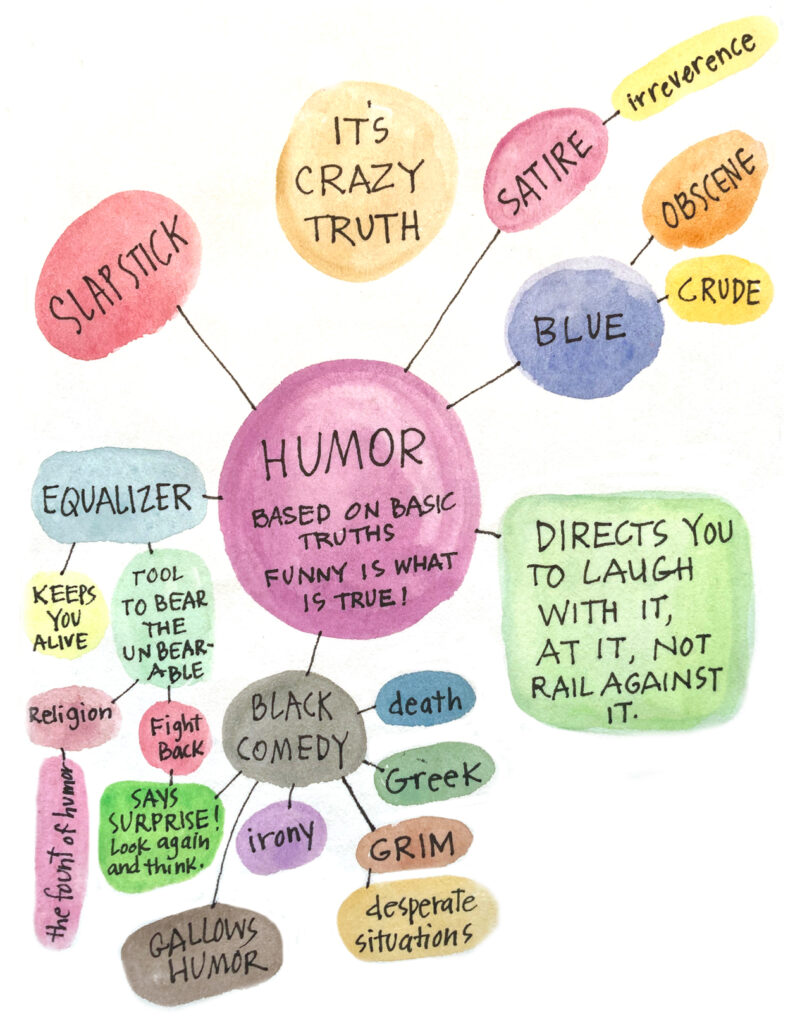 irreverence
IT'S
CRAZY
TRUTH
SATIRE
OBSCENE
SLAPSTICK
CRUDE
BLUE
HUMOR
BASED ON BASIC
TRUTHS
FUNNY IS WHAT
IS TRUE!
EQUALIZER
DIRECTS YOU
TO LAUGH
WITH IT,
AT IT, NOT
RAIL AGAINST
IT.
KEEPS
YOU
ALIVE
TOOL
TO BEAR
THE
UNBEAR-
ABLE
Religion
Fight
Back
BLACK
COMEDY
death
Greek
the fount of humor
SAYS
SURPRISE!
Look again
and think.
irony
GRIM
desperate
situations
GALLOWS
HUMOR